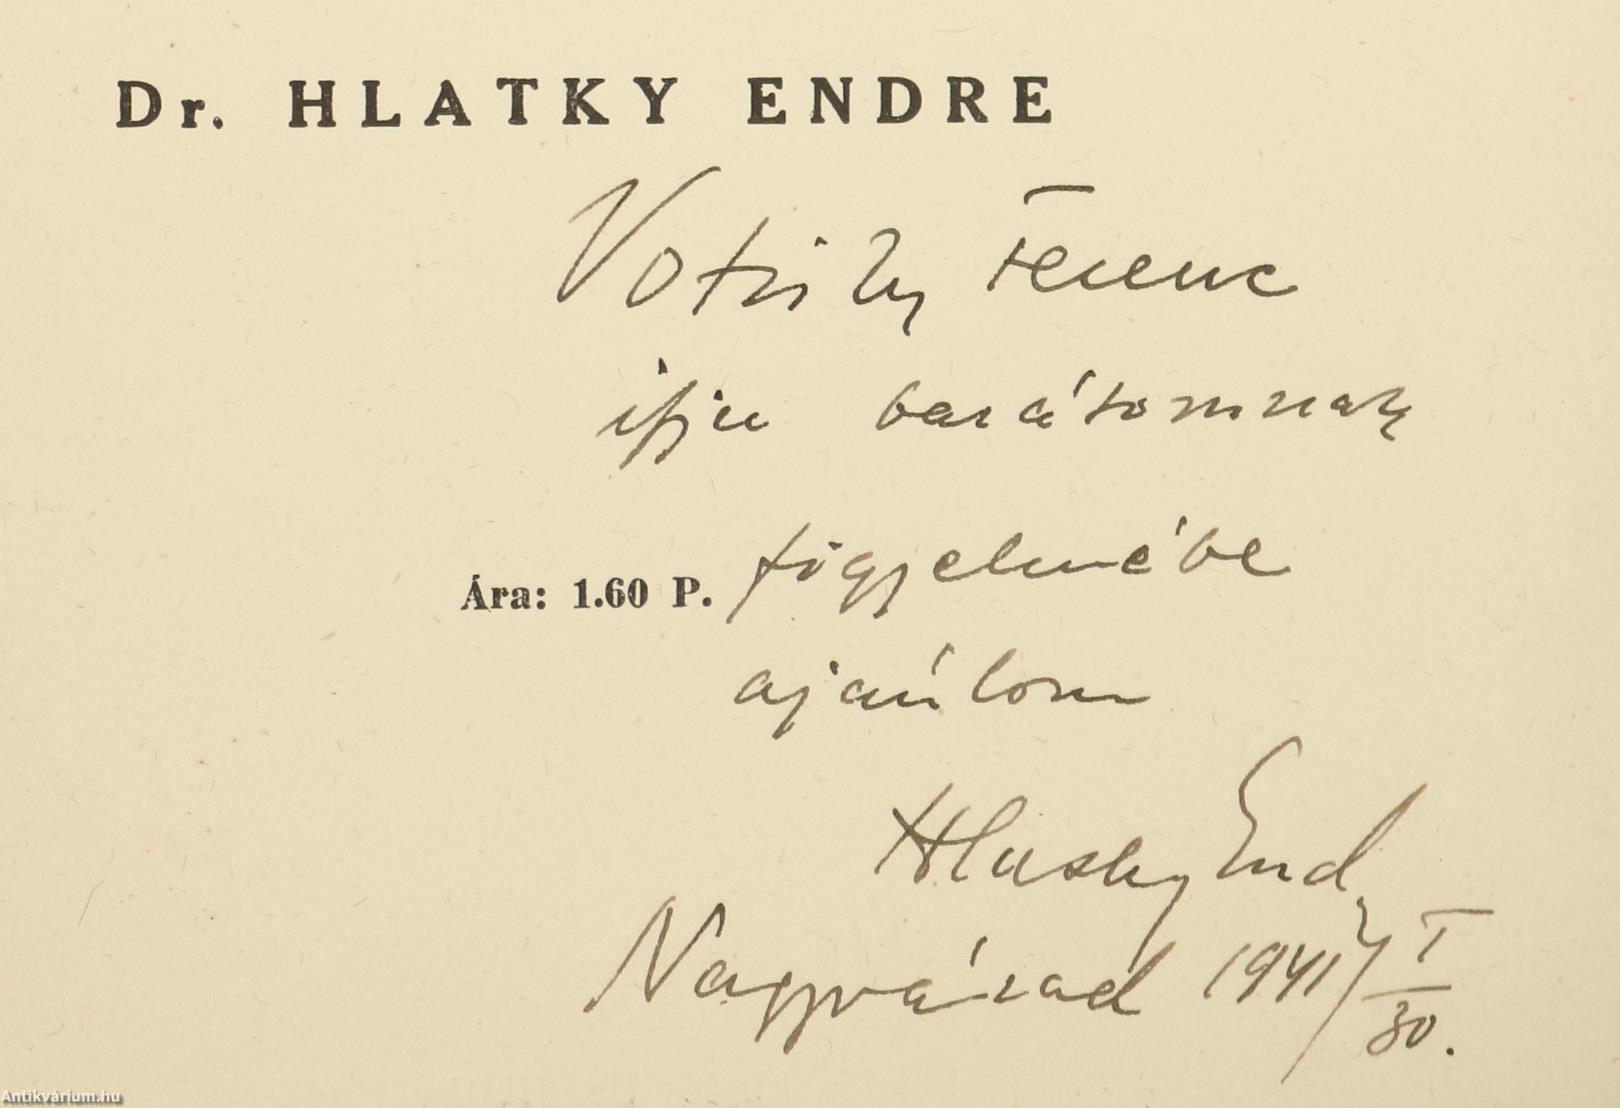 Dr. HLATKY ENDRE
Votisky Ferenc
ifju barátomnak
figyelmébe
Ára: 1.60 P.
ajánlom
Hlatky Endre
Nagyvárad 1941 I/30.
Antikvárium.hu